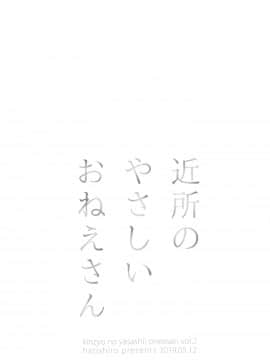 近所の
やさしい
おねえさん
kinzyo no yasashii oneesan vol.2
hatoshiro presents 2019.05.12